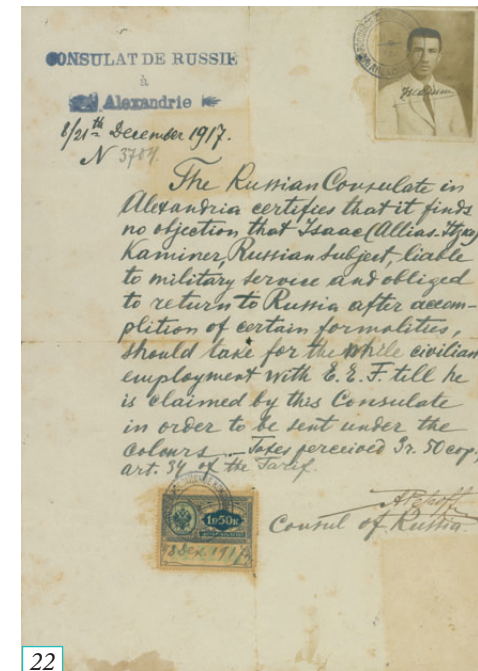 CONSULAT DE RUSSIE
à
Alexandrie
8/21th December 1917.
N 3704.
The Russian Consulate in
Alexandria certifies that it finds
no objection that Isaac (Allias-Itzao)
Kaminer, Russian Subject, liable
to military service and obliged
to return to Russia after accom-
plition of certain formalities,
should take for the while civilian
employment with E. E. F. till he
is claimed by this Consulate
in order to be sent under the
colours — Taxes perceived 3r. 50 cop.,
art. 34 of the Tarif.
1р50к
8 Дек 1917
Consul of Russia
22